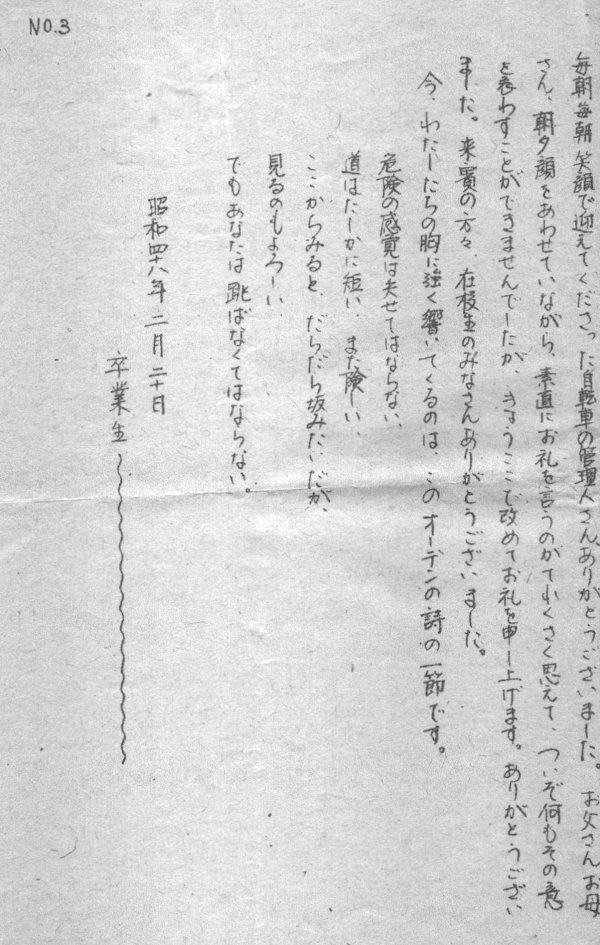 NO.3
毎朝毎朝笑顔で迎えてくださった自転車の管理人さん、ありがとうございました。お父さんお母
さん、朝夕顔をあわせていながら、素直にお礼を言うのがてれくさく思えて、ついぞ何もその意
を表わすことができませんでしたが、きょうここで改めてお礼を申し上げます。ありがとうござい
ました。来賓の方々、在校生のみなさんありがとうございました。
今、わたしたちの胸に強く響いてくるのは、このオーデンの詩の一節です。
危険の感覚は失せてはならない、
道はたしかに短い、また険しい、
ここからみると、だらだら坂みたいだが、
見るのもよろしい
でもあなたは跳ばなくてはならない。
昭和四十八年二月二十日
卒業生